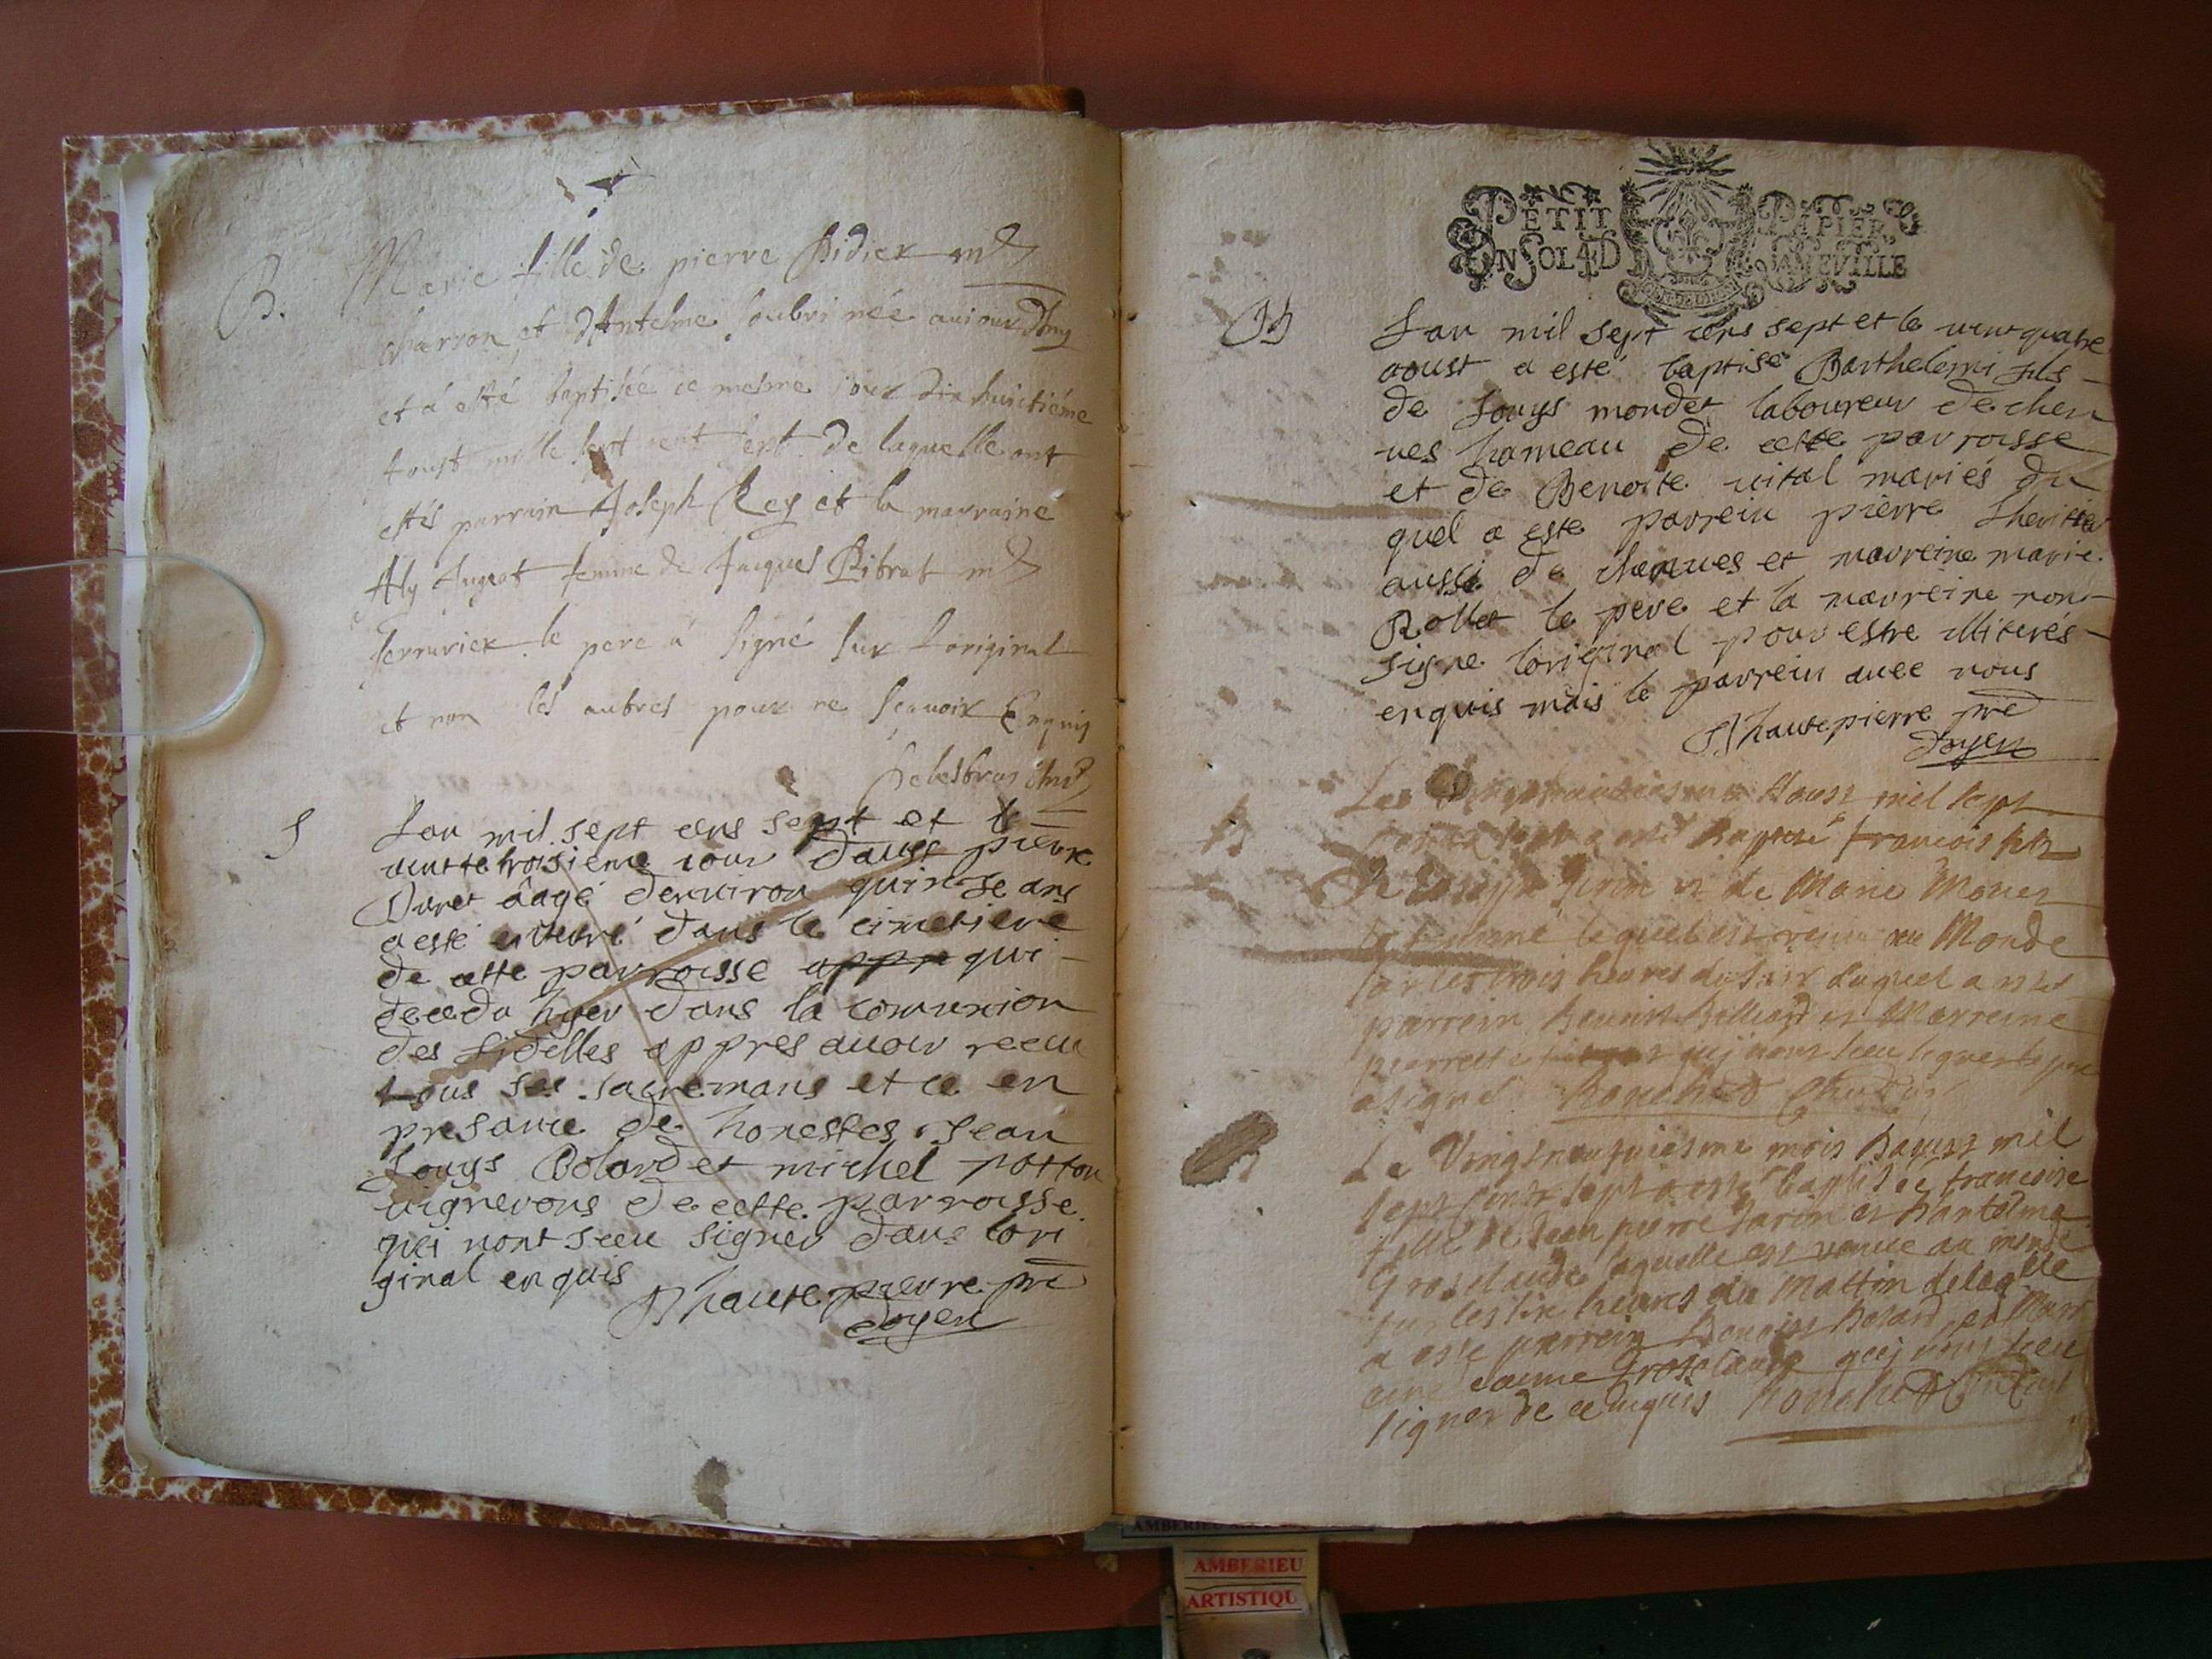 B.
Marie fille de pierre Didier md
charron et dAntelme Aubri née auiourdhuy
et a esté baptisée ce mesme iour dix huictiéme
Aoust mille sept cent sept de laquelle ont
estés parrain Joseph Rey et la marraine
Aly Augeat femme de Jacques Bibrat md
serrurier le pere a signé sur Loriginal
et non les autres pour ne sçauoir Enquis
S
Lan mil sept cens sept et le
uinttetroisieme iour daust pierre
Duret âagé denuiron quinse ans
a esté enterré dans le cimetiere
de cette parroisse qui
deceda hyer dans la comunion
des fidelles appres auoir receu
tous ses sacremans et ce en
presance de honestes Jean
Louys Bolard et michel potton
uignerons de cette parroisse
qui nont sceu signer dans lori
ginal enquis
Dhautepierre pre
doyen
PETIT PAPIER,
UN SOL 4 D LA FEVILLE
B
Lan mil sept cens sept et le uint quatre
aoust a esté baptisé Barthelemi fils
de Louys mondet laboureur de chen
ues hameau de cette parroisse
et de Benoite uital mariés du
quel a este parrein pierre Lheritier
aussi de chenues et marreine marie
Rollet le pere et la marreine non
signe loriginal pour estre illiterés
enquis mais le parrein auec nous
Dhautepierre pre
doyen
B
Le Vingthuictiesme Aoust mil sept
cents sept a esté Baptisé francois fils
de Joseph et de Marie Monet
sa femme lequel est venu au Monde
sur les trois heures du soir duquel a esté
parrein Benoist Billiard et Marreine
pierrette quj nont sceu signer le pere
a signé
B
Le Vingtneufuiesme mois Daoust mil
sept cents sept a esté baptisée francoise
fille de Jean pierre Jarin et Dantelma
Grosclaude laquelle est venue au monde
sur les six heures du Mattin delaqlle
a esté parrein Benoist Bolard et Marr
eine Grosclaude quj nont sceu
signer de ce enquis
AMBERIEU
ARTISTIQU